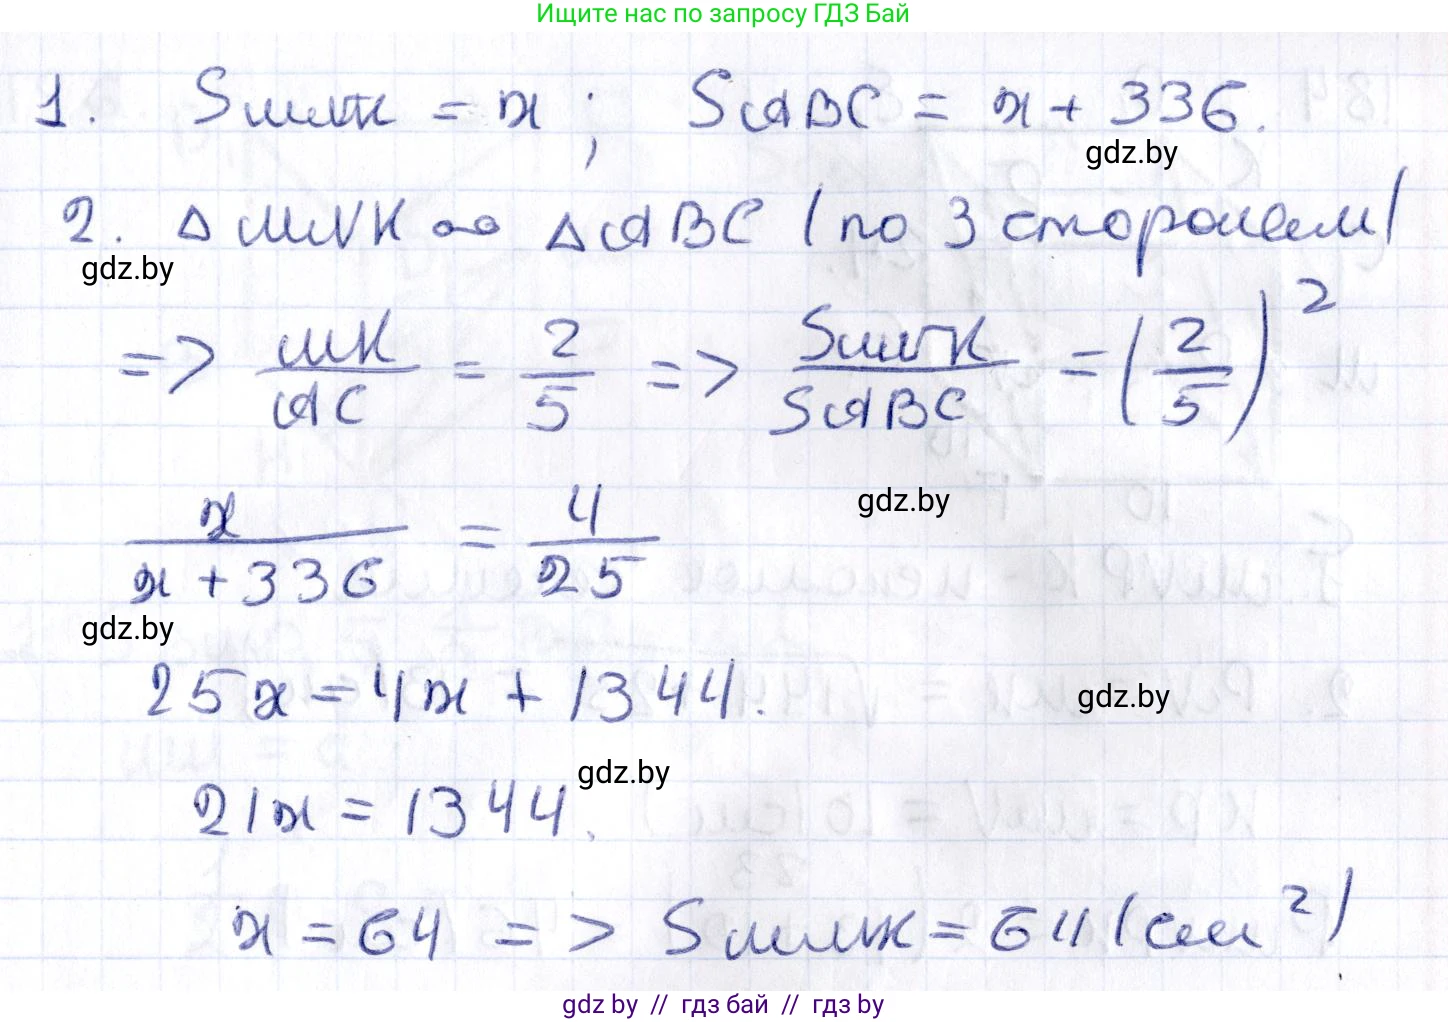 Ищите нас по запросу ГДЗ Бай
1. SMNK = x ; SABC = x + 336.
gdz.by
2. △MNK ∾ △ABC (по 3 сторонам)
gdz.by
=> MK/AC = 2/5 => SMNK/SABC = (2/5)²
gdz.by
x/(x + 336) = 4/25
gdz.by
25x = 4x + 1344.
gdz.by
gdz.by
21x = 1344.
x = 64 => SMNK = 64 (см²)
gdz by // гдз бай // гдз by